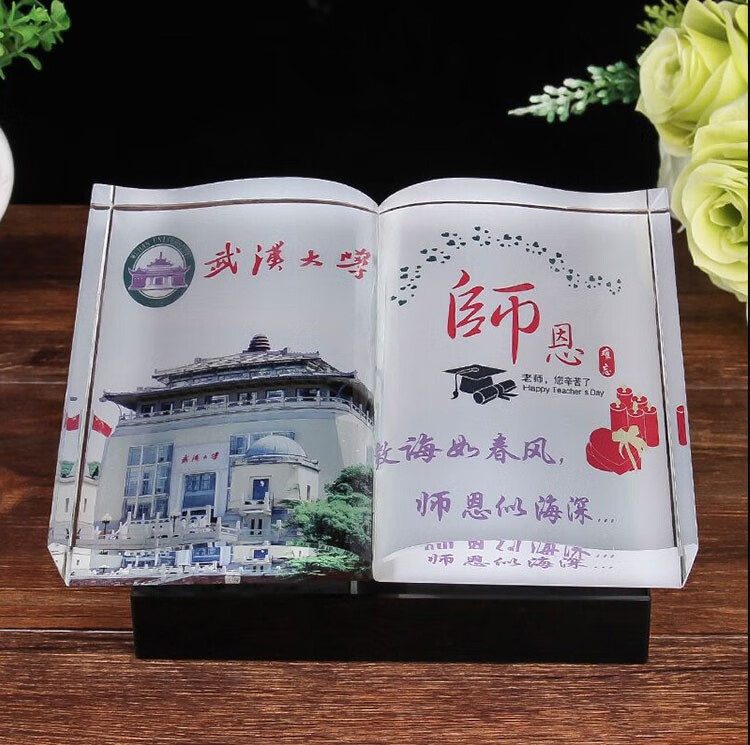 武漢大學
WUHAN UNIVERSITY
武漢大学
師恩
难忘
老师，您辛苦了
Happy Teacher's Day
教诲如春风，
师恩似海深...
师恩似海深...